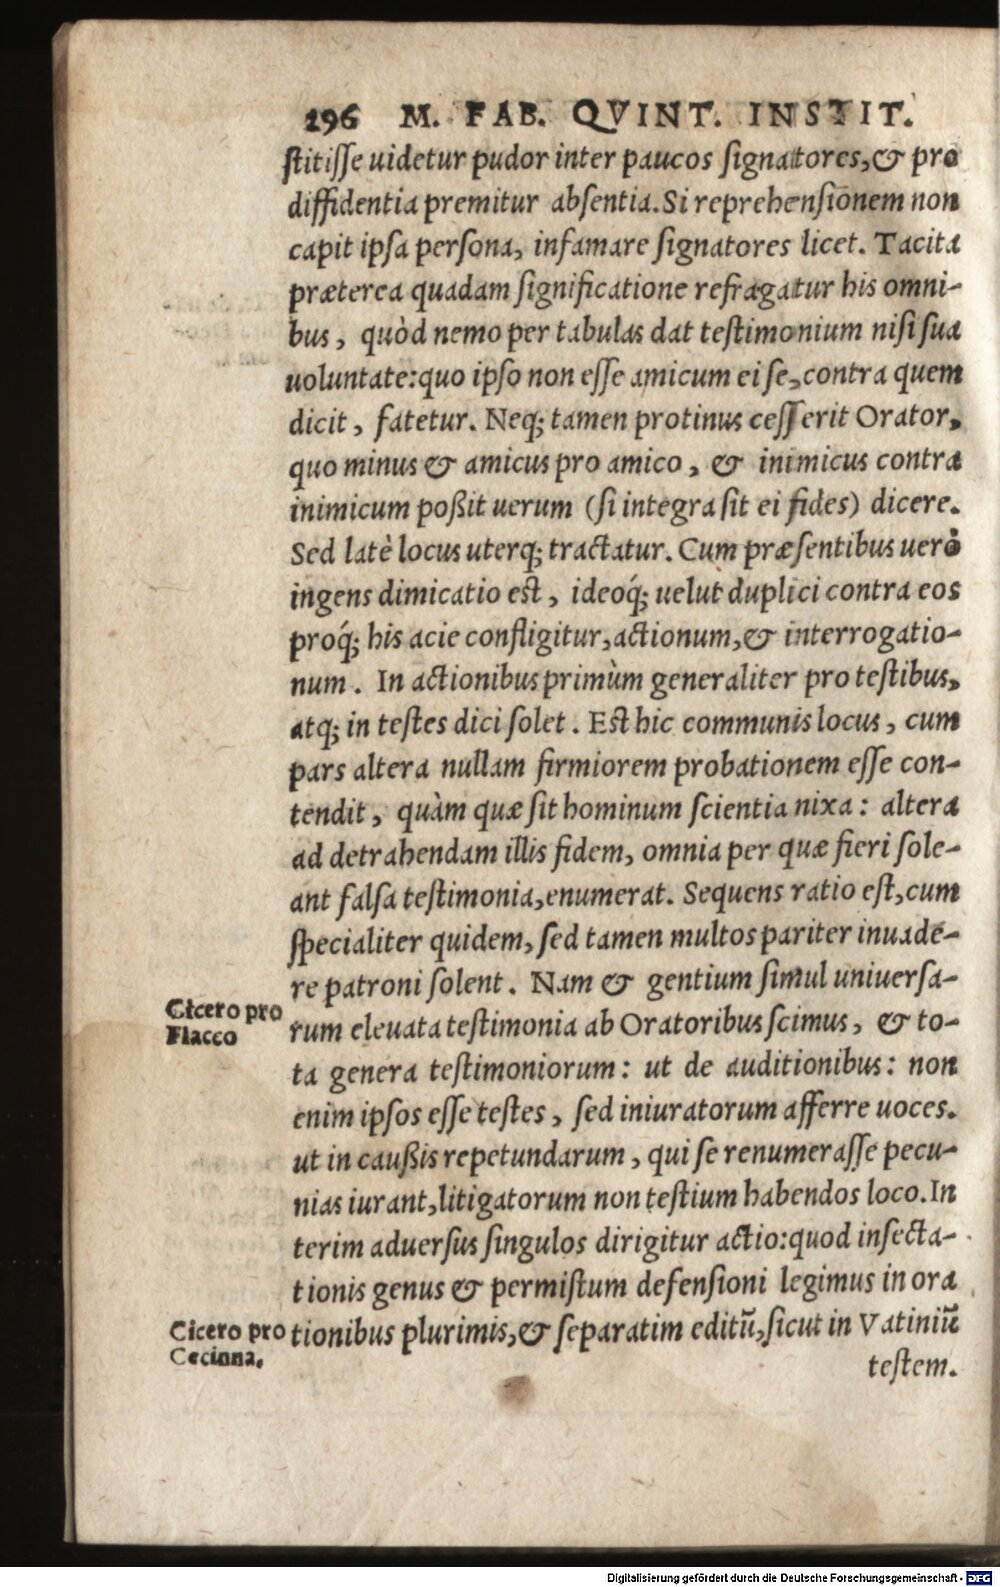 296 M. FAB. QVINT. INSTIT.
stitisse uidetur pudor inter paucos signatores,& pro
diffidentia premitur absentia. Si reprehensionem non
capit ipsa persona, infamare signatores licet. Tacita
præterea quadam significatione refragatur his omni-
bus, quòd nemo per tabulas dat testimonium nisi sua
uoluntate:quo ipso non esse amicum ei se,contra quem
dicit, fatetur. Neq; tamen protinus cesserit Orator,
quo minus & amicus pro amico, & inimicus contra
inimicum poßit uerum (si integra sit ei fides) dicere.
Sed latè locus uterq; tractatur. Cum præsentibus uerò
ingens dimicatio est, ideoq́; uelut duplici contra eos
proq́; his acie confligitur,actionum,& interrogatio-
num. In actionibus primùm generaliter pro testibus,
atq; in testes dici solet. Est hic communis locus, cum
pars altera nullam firmiorem probationem esse con-
tendit, quàm quæ sit hominum scientia nixa: altera
ad detrahendam illis fidem, omnia per quæ fieri sole-
ant falsa testimonia,enumerat. Sequens ratio est,cum
specialiter quidem, sed tamen multos pariter inuade-
re patroni solent. Nam & gentium simul uniuersa-
Cicero pro
Flacco
rum eleuata testimonia ab Oratoribus scimus, & to-
ta genera testimoniorum: ut de auditionibus: non
enim ipsos esse testes, sed iniuratorum afferre uoces.
ut in caußis repetundarum, qui se renumerasse pecu-
nias iurant,litigatorum non testium habendos loco. In
terim aduersus singulos dirigitur actio:quod insecta-
tionis genus & permistum defensioni legimus in ora
Cicero pro
Cecinna.
tionibus plurimis,& separatim editũ,sicut in Vatiniũ
testem.
Digitalisierung gefördert durch die Deutsche Forschungsgemeinschaft - DFG